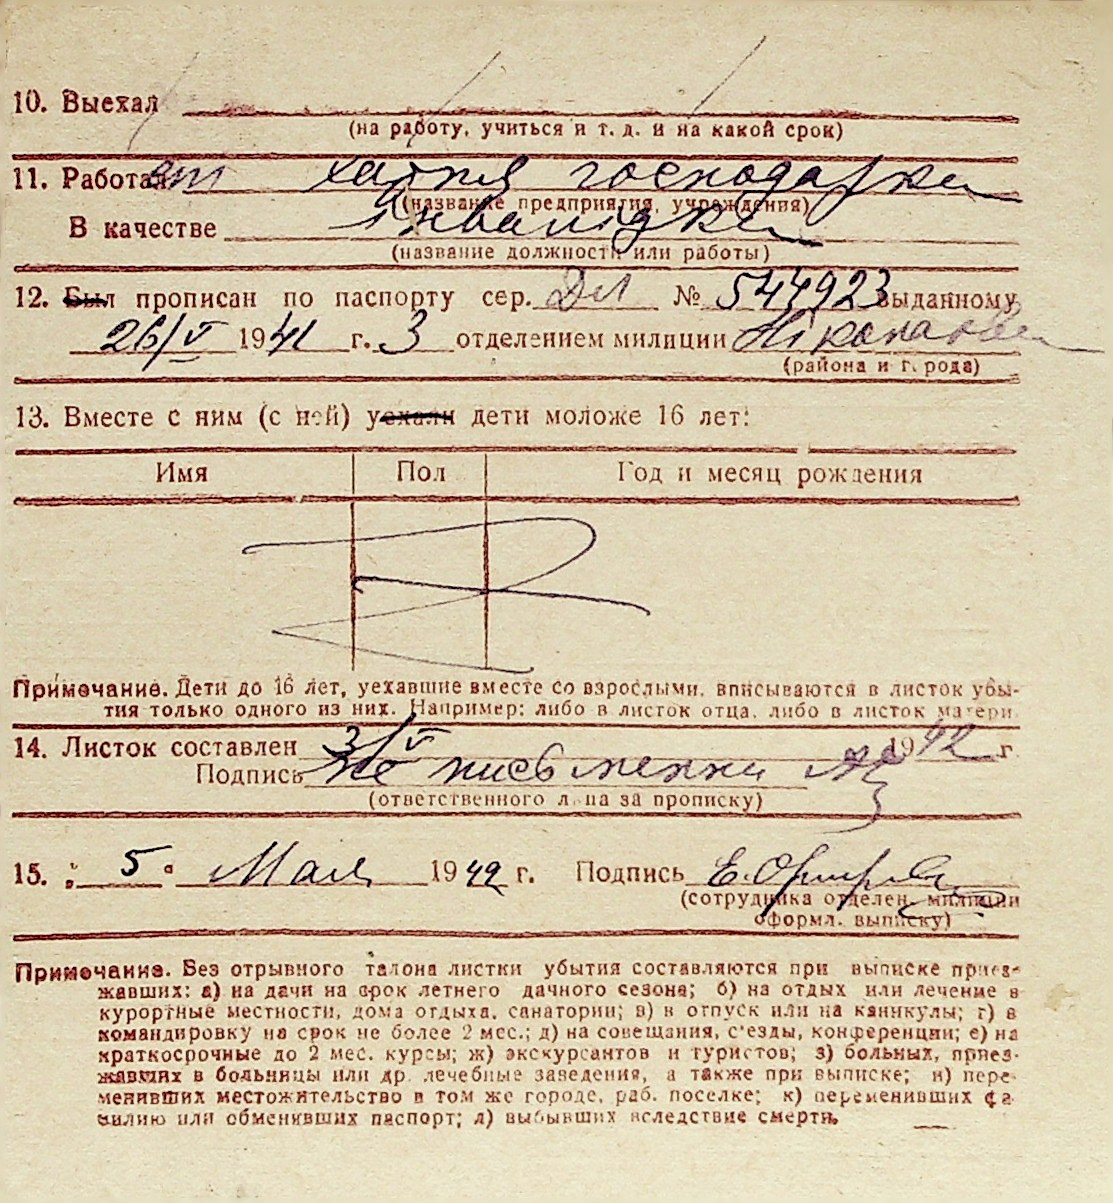 10. Выехал
(на работу, учиться и т. д. и на какой срок)
11. Работает хатня господарка
(название предприятия, учреждения)
В качестве
(название должности или работы)
12. Был прописан по паспорту сер. № 544923 выданному
26/V 1941 г. 3 отделением милиции
(района и города)
13. Вместе с ним (с ней) уехали дети моложе 16 лет:
Имя Пол Год и месяц рождения
Примечание. Дети до 16 лет, уехавшие вместе со взрослыми, вписываются в листок убы-
тия только одного из них. Например: либо в листок отца, либо в листок матери.
14. Листок составлен 3/V 1942 г.
Подпись не письменни
(ответственного лица за прописку)
15. „ 5 “ Мая 1942 г. Подпись
(сотрудника отделен. милиции
оформл. выписку)
Примечание. Без отрывного талона листки убытия составляются при выписке приез-
жавших: а) на дачи на срок летнего дачного сезона; б) на отдых или лечение в
курортные местности, дома отдыха, санатории; в) в отпуск или на каникулы; г) в
командировку на срок не более 2 мес.; д) на совещания, с'езды, конференции; е) на
краткосрочные до 2 мес. курсы; ж) экскурсантов и туристов; з) больных, приез-
жавших в больницы или др. лечебные заведения, а также при выписке; и) пере-
менивших местожительство в том же городе, раб. поселке; к) переменивших фа-
милию или обменивших паспорт; л) выбывших вследствие смерти.